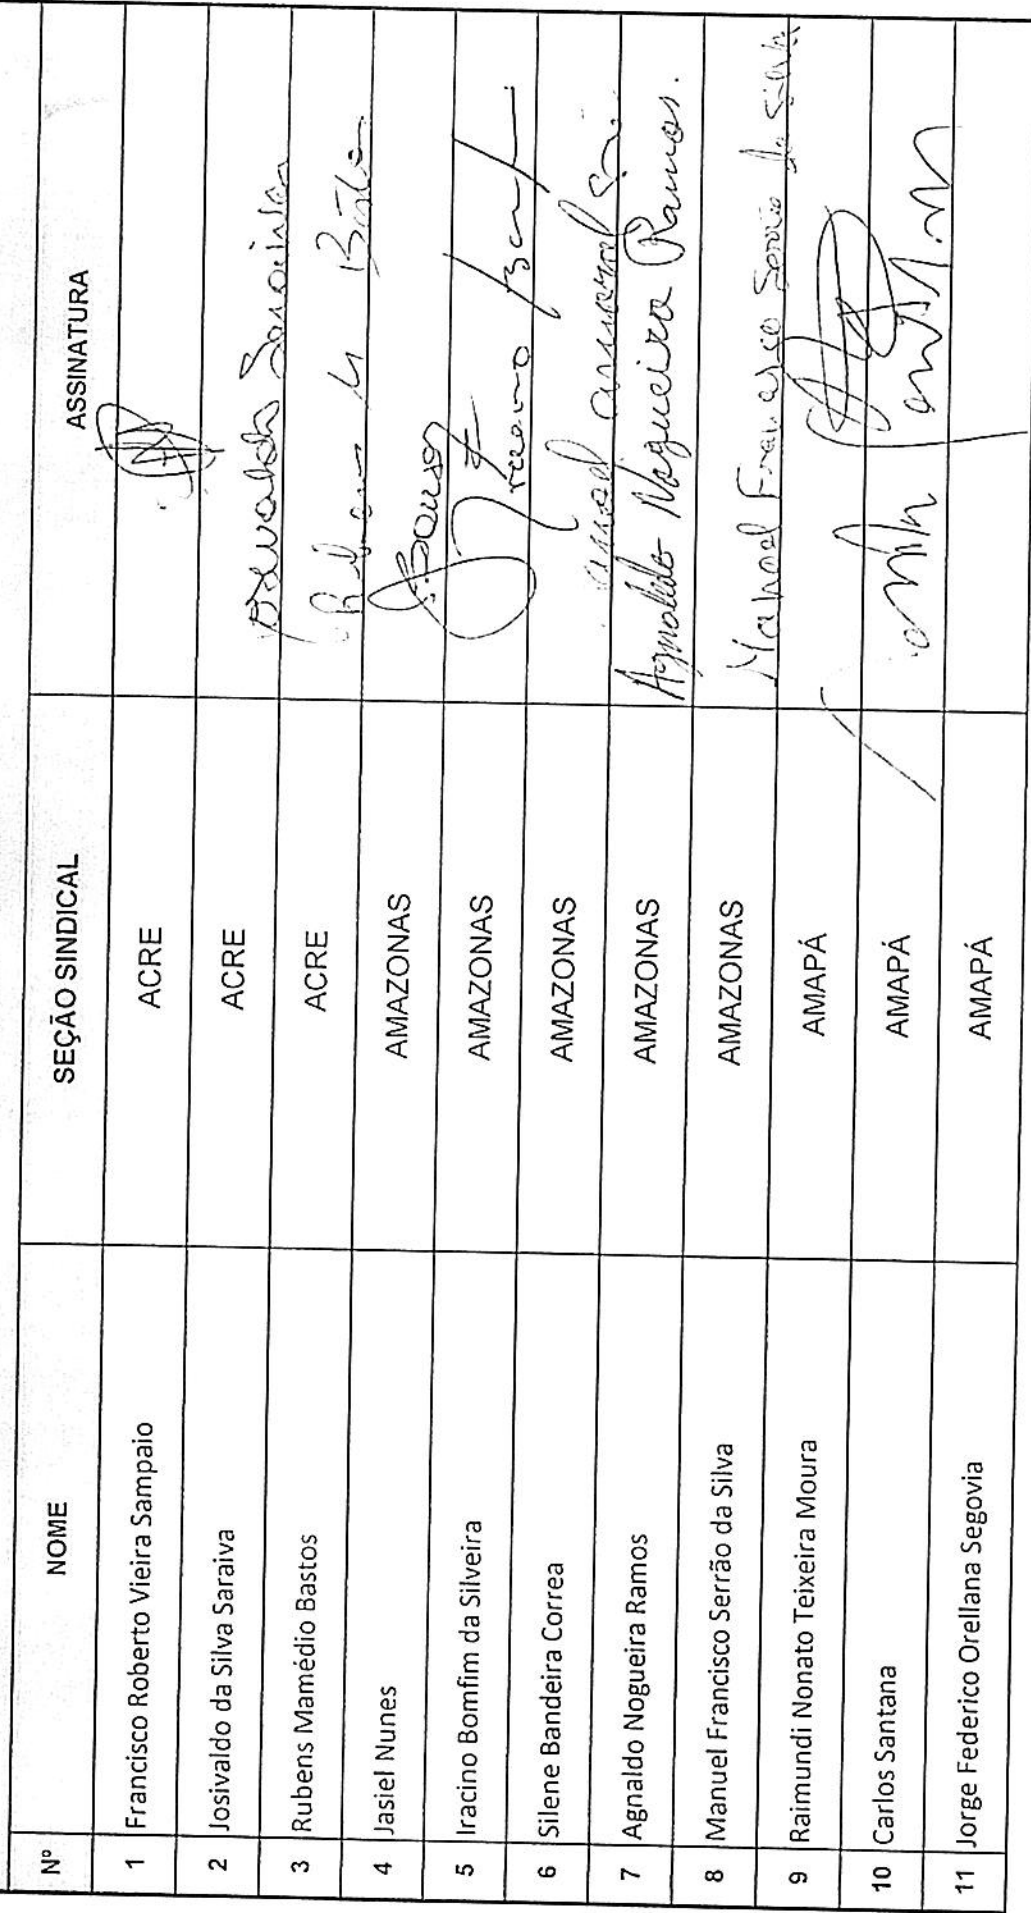 Nº NOME SEÇÃO SINDICAL ASSINATURA
1 Francisco Roberto Vieira Sampaio ACRE
2 Josivaldo da Silva Saraiva ACRE
3 Rubens Mamédio Bastos ACRE
4 Jasiel Nunes AMAZONAS
5 Iracino Bomfim da Silveira AMAZONAS
6 Silene Bandeira Correa AMAZONAS
7 Agnaldo Nogueira Ramos AMAZONAS Agnaldo Nogueira Ramos.
8 Manuel Francisco Serrão da Silva AMAZONAS Manoel Francisco Serrão da Silva
9 Raimundi Nonato Teixeira Moura AMAPÁ
10 Carlos Santana AMAPÁ
11 Jorge Federico Orellana Segovia AMAPÁ